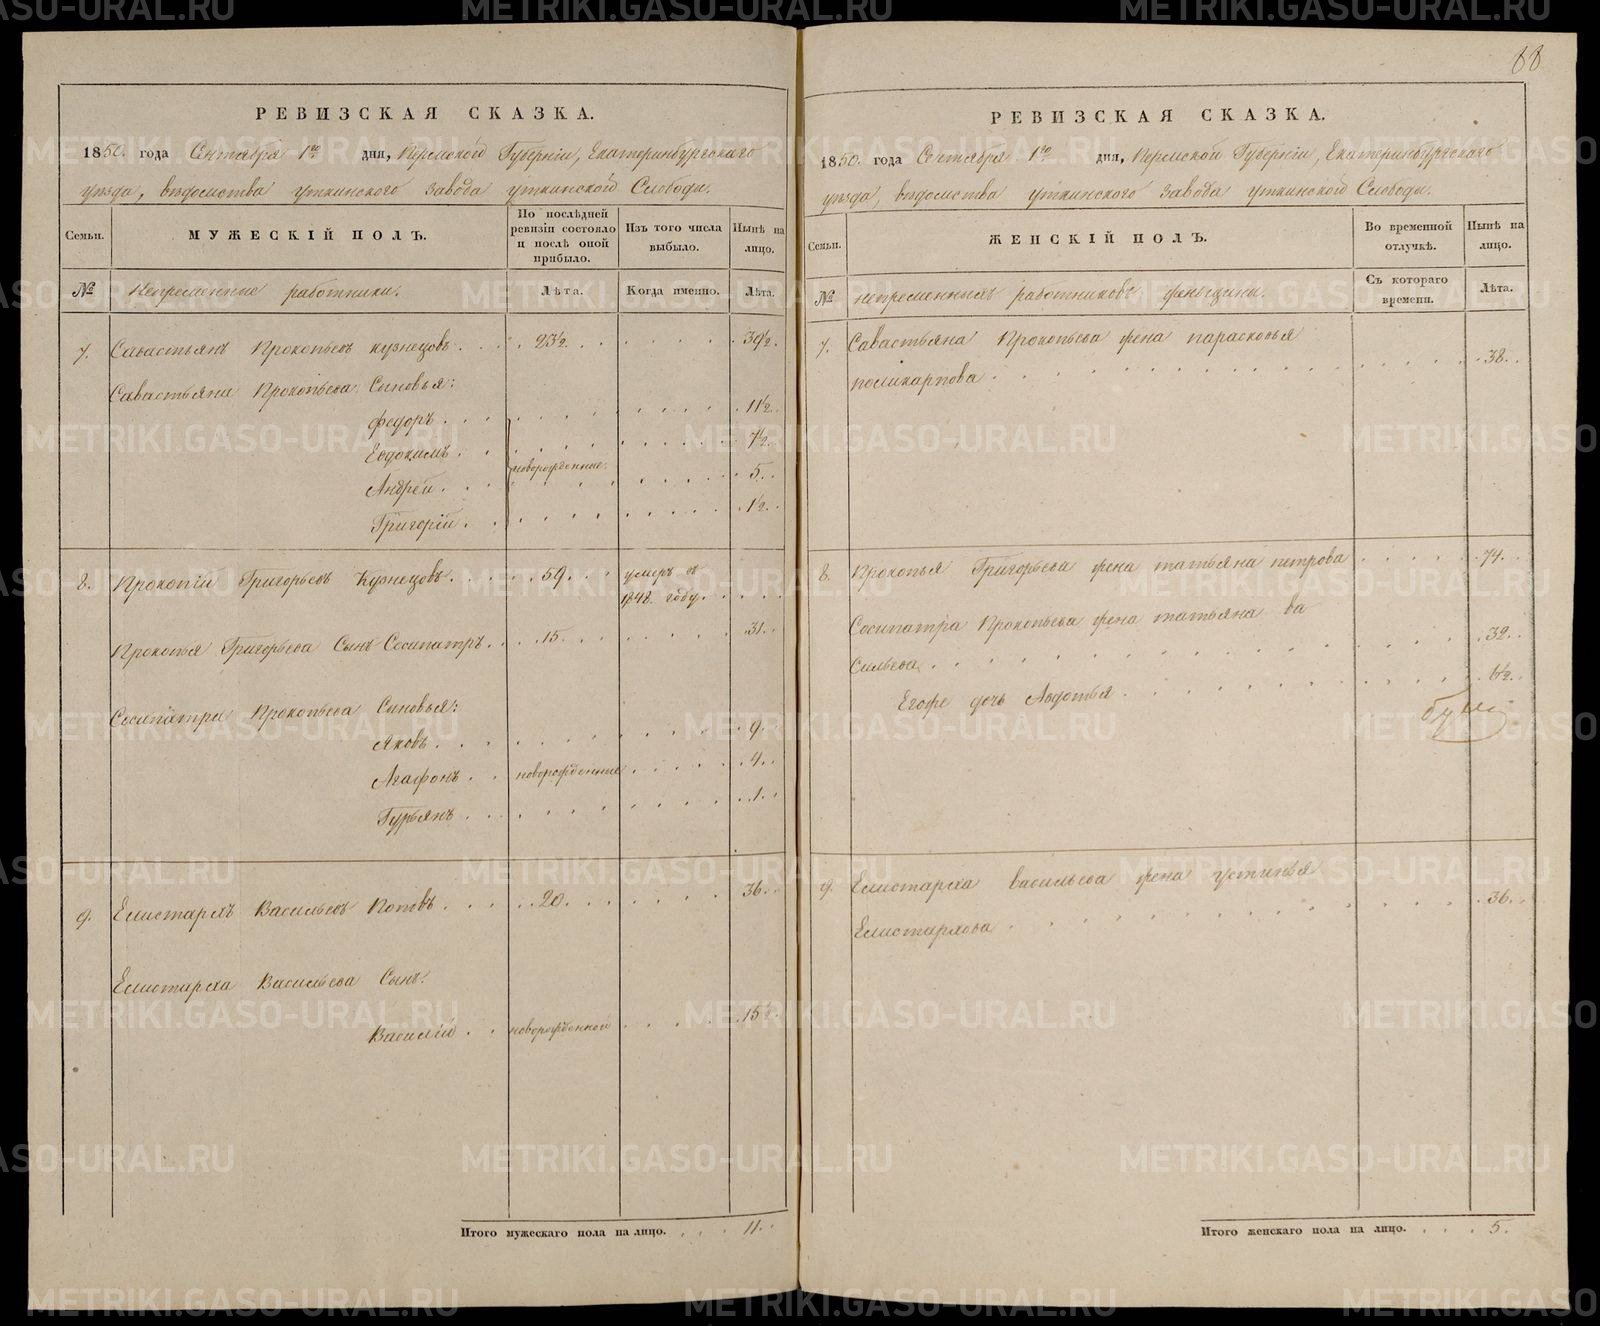 88
РЕВИЗСКАЯ СКАЗКА.
1850. года Сентября 1го дня, Пермской Губерніи, Екатеринбургскаго
уезда, ведомства уткинского завода уткинской Слободы.
Семьи.
МУЖЕСКІЙ ПОЛЪ.
По послѣдней ревизіи состояло и послѣ оной прибыло.
Изъ того числа выбыло.
Нынѣ на лицо.
№ Непременные работники.
Лѣта.
Когда именно.
Лѣта.
7. Савастьянъ Прокопьевъ Кузнецовъ . . . 23½ . . . 39½.
Савастьяна Прокопьева Сыновья:
Федоръ . . . 11½.
Евдокимъ . . . 7½.
новорожденные.
Андрей . . . 5.
Григорій . . . 1½.
8. Прокопій Григорьевъ Кузнецовъ . . . 59 . . умеръ въ
1848. году . . .
Прокопья Григорьева Сынъ Сосипатръ . . . 15 . . . 31.
Сосипатра Прокопьева Сыновья:
Яковъ . . . 9.
Агафонъ . . новорожденные . . . 4.
Гурьянъ . . . 1.
9. Елистархъ Васильевъ Поповъ . . . 20 . . . 36.
Елистарха Васильева Сынъ:
Василій . . новорожденной . . . 15½.
Итого мужескаго пола на лицо. . . . 11.
РЕВИЗСКАЯ СКАЗКА.
1850. года Сентября 1го дня, Пермской Губерніи, Екатеринбургскаго
уезда, ведомства уткинского завода уткинской Слободы.
Семьи.
ЖЕНСКІЙ ПОЛЪ.
Во временной отлучкѣ.
Нынѣ на лицо.
№ непременныхъ работниковъ женщины.
Съ котораго времени.
Лѣта.
7. Савастьяна Прокопьева жена парасковья
поликарпова . . . 38.
8. Прокопья Григорьева жена татьяна петрова . . . 74.
Сосипатра Прокопьева жена татьяна ва
сильева . . . 32.
Егоже дочь Авдотья . . . 6½.
9. Елистарха васильева жена устинья
Елистархова . . . 36.
Итого женскаго пола на лицо. . . . 5.
METRIKI.GASO-URAL.RU